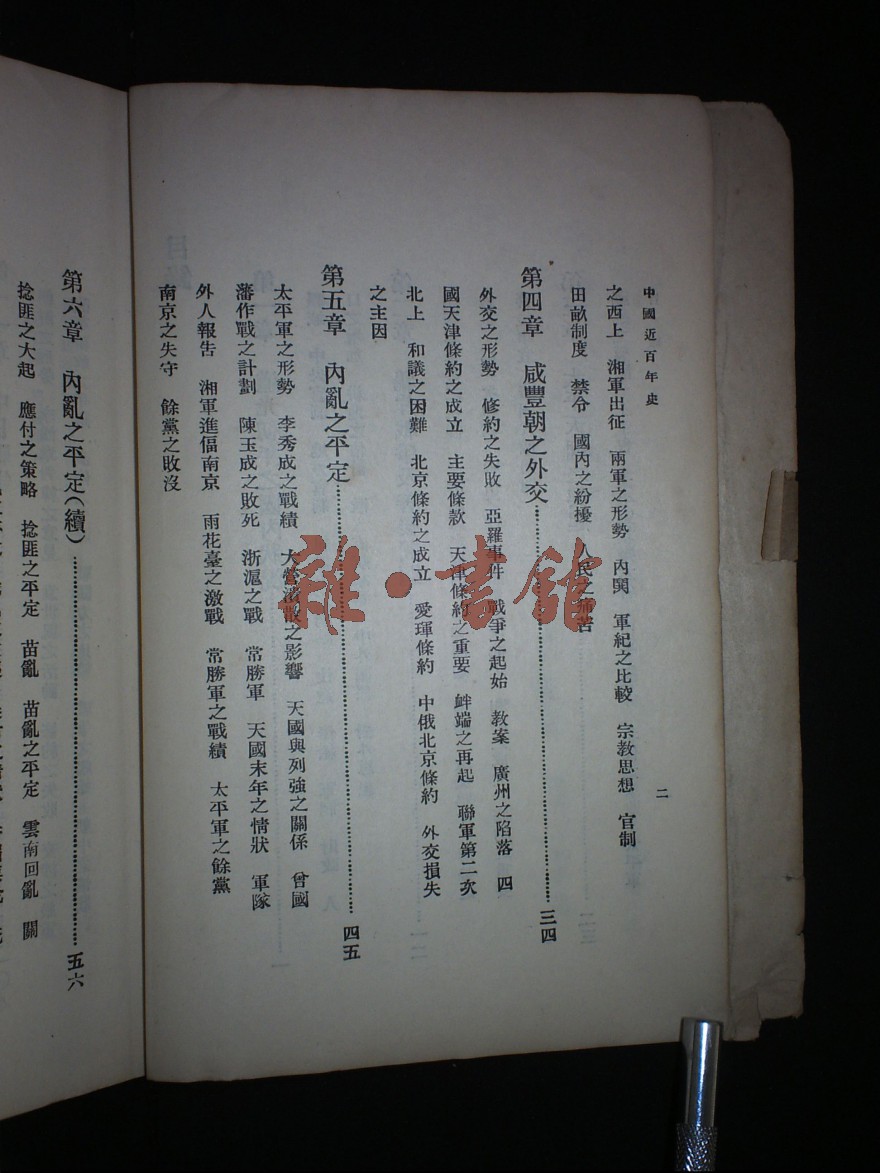 中國近百年史
二
之西上　湘軍出征　兩軍之形勢　內閧　軍紀之比較　宗教思想　官制
田畝制度　禁令　國內之紛擾　人民之痛苦
第四章　咸豐朝之外交…………三四
外交之形勢　修約之失敗　亞羅事件　戰爭之起始　教案　廣州之陷落　四
國天津條約之成立　主要條款　天津條約之重要　衅端之再起　聯軍第二次
北上　和議之困難　北京條約之成立　愛琿條約　中俄北京條約　外交損失
之主因
第五章　內亂之平定…………四五
太平軍之形勢　李秀成之戰績　大營潰散之影響　天國與列強之關係　曾國
藩作戰之計劃　陳玉成之敗死　浙滬之戰　常勝軍　天國末年之情狀　軍隊
外人報告　湘軍進偪南京　雨花臺之激戰　常勝軍之戰績　太平軍之餘黨
南京之失守　餘黨之敗沒
第六章　內亂之平定(續)…………五六
捻匪之大起　應付之策略　捻匪之平定　苗亂　苗亂之平定　雲南回亂　關
雜·書館